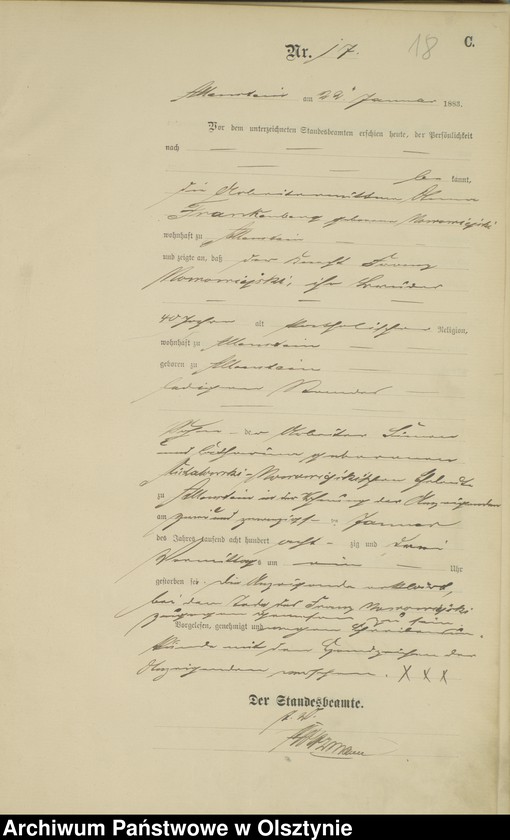 18 C.
Nr. 17.
Allenstein am 22. Januar 1883.
Vor dem unterzeichneten Standesbeamten erschien heute, der Persönlichkeit
nach
be kannt,
die Arbeiterwittwe Anna
Frankenberg geborene Nowowiejski
wohnhaft zu Allenstein
und zeigte an, daß der Knecht Franz
Nowowiejski, ihr Bruder
40 Jahre alt katholischer Religion,
wohnhaft zu Allenstein
geboren zu Allenstein
ledigen Standes
Sohn der Arbeiter
und Catharina geborenen
Nowowiejskischen Eheleute
zu Allenstein in der Wohnung der Anzeigenden
am zwei und zwanzigsten Januar
des Jahres tausend acht hundert acht zig und drei
Vormittags um ein Uhr
gestorben sei. Die Anzeigende erklärt,
bei dem Tode des Franz Nowowiejski
zugegen gewesen zu sein.
Vorgelesen, genehmigt und wegen Schreibensun-
kunde mit dem Handzeichen der
Anzeigenden versehen. X X X
Der Standesbeamte.
Archiwum Państwowe w Olsztynie